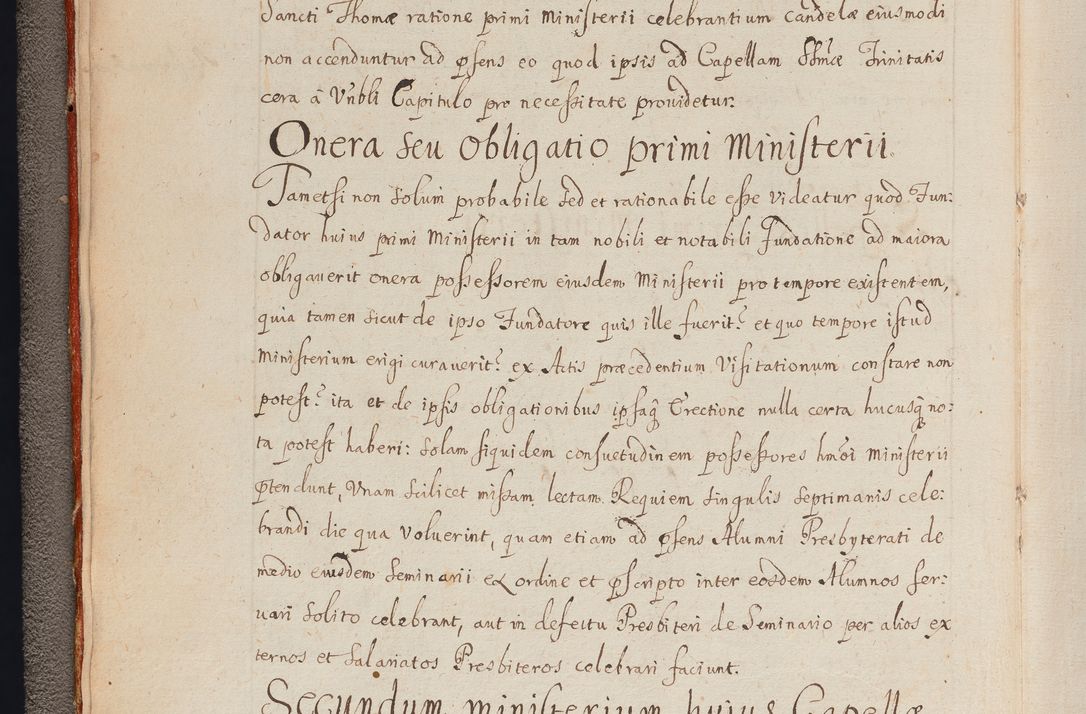 Sancti Thomæ ratione primi Ministerii celebrantium candelæ eiusmodi
non accenduntur ad p̃sens eo quod ipsis ad Capellam SSm̃æ Trinitatis
cera â Vn̄bli Capitulo pro necessitate prouidetur.
Onera seu Obligatio primi Ministerii.
Tametsi non solum probabile sed et rationabile esse videatur quod Fun:
dator huius primi Ministerii in tam nobili et notabili Fundatione ad maiora
obligauerit onera possessorem eiusdem Ministerii pro tempore existentem,
quia tamen sicut de ipso Fundatore quis ille fuerit? et quo tempore istud
Ministerium erigi curauerit? ex Actis præcedentium Visitationum constare non
potest? ita et de ipsis obligationibus ipsaq̃ Erectione nulla certa hucusq̃ no:
ta potest haberi: solam siquidem consuetudinem possessores hm̃oi Ministerii
p̃tendunt, Vnam scilicet missam lectam Requiem singulis septimanis cele:
brandi die qua voluerint, quam etiam ad p̃sens Alumni Presbyterati de
medio eiusdem Seminarii ex ordine et p̃scripto inter eosdem Alumnos ser:
uari solito celebrant, aut in defectu Presbiteri de Seminario per alios ex
ternos et salariatos Presbiteros celebrari faciunt.
Secundum ministerium huius Capellæ